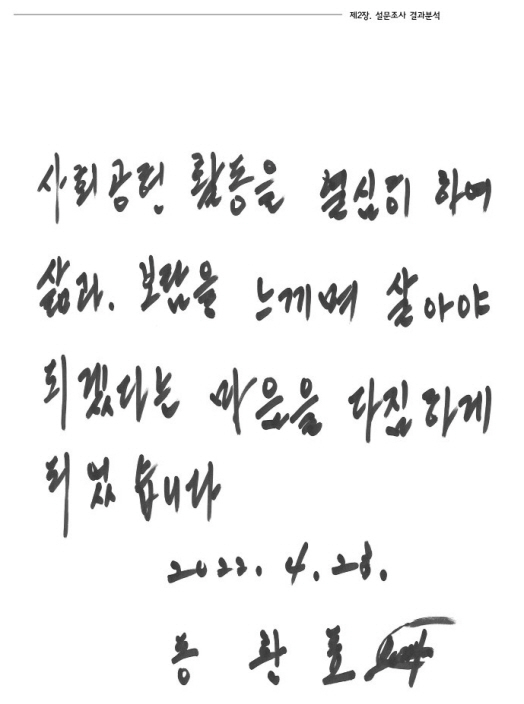 제2장. 설문조사 결과분석
사회공헌 활동을 열심히 하여
삶과. 보람을 느끼며 살아야
되겠다는 마음을 다짐하게
되었습니다
2022. 4. 28.